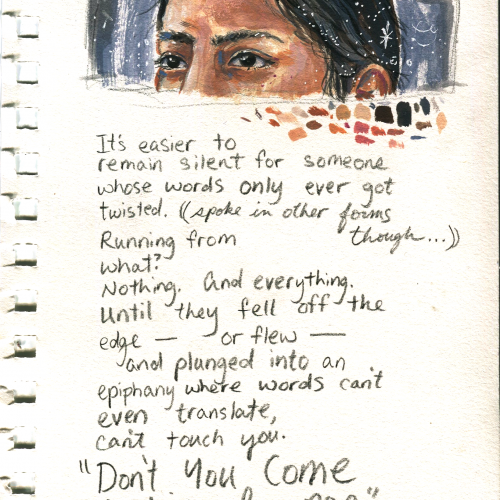 It's easier to
remain silent for someone
whose words only ever got
twisted. ((spoke in other forms
though...))
Running from
what?
Nothing. And everything.
Until they fell off the
edge — or flew —
and plunged into an
epiphany where words can't
even translate,
can't touch you.
"Don't You Come